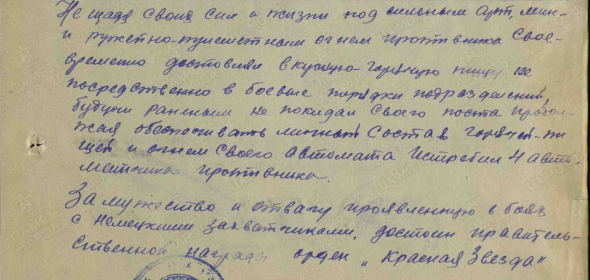 Не щадя своих сил и жизни под сильным арт, мин-
и ружейно-пулеметным огнем противника свое-
временно доставлял вкусную-горячую пищу не
посредственно в боевые порядки подразделений,
будучи раненым не покидал своего поста продол-
жая обеспечивать личный состав горячей-пи
щей и огнем своего автомата истребил 4 авто-
матчика противника.
За мужество и отвагу проявленную в боях
с немецкими захватчиками, достоин правитель-
ственной награды орден „Красная Звезда"